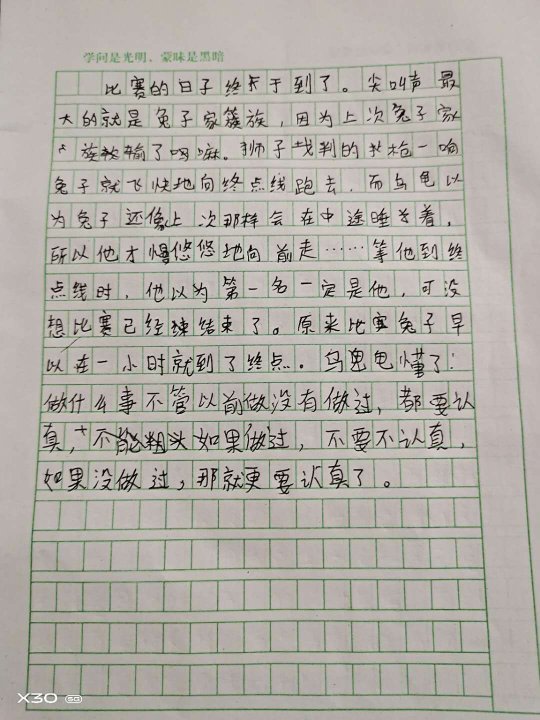 学问是光明、蒙昧是黑暗
比赛的日子终于到了。尖叫声最
大的就是兔子家族，因为上次兔子家
族输了吗嘛。狮子找判的抢一响
兔子就飞快地向终点线跑去，而乌龟以
为兔子还像上次那样会在中途睡着，
所以他才慢悠悠地向前走……等他到终
点线时，他以为第一名一定是他，可没
想比赛已经结束了。原来比赛兔子早
以在一小时就到了终点。乌龟懂了：
做什么事不管以前做没有做过，都要认
真，不能粗头如果做过，不要不认真，
如果没做过，那就更要认真了。
X30 5G